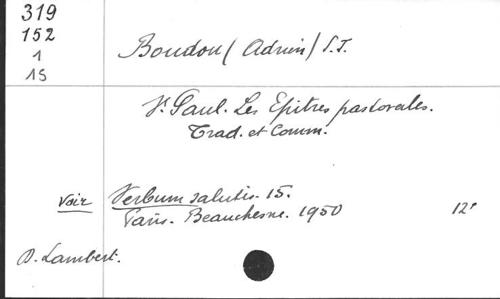 319
152
1
15
Boudou (Adrien) S.J.
St Paul. Les Epitres pastorales.
Trad. et Comm.
Voir Verbum salutis. 15.
Paris. Beauchesne. 1950 12°
D. Lambert.